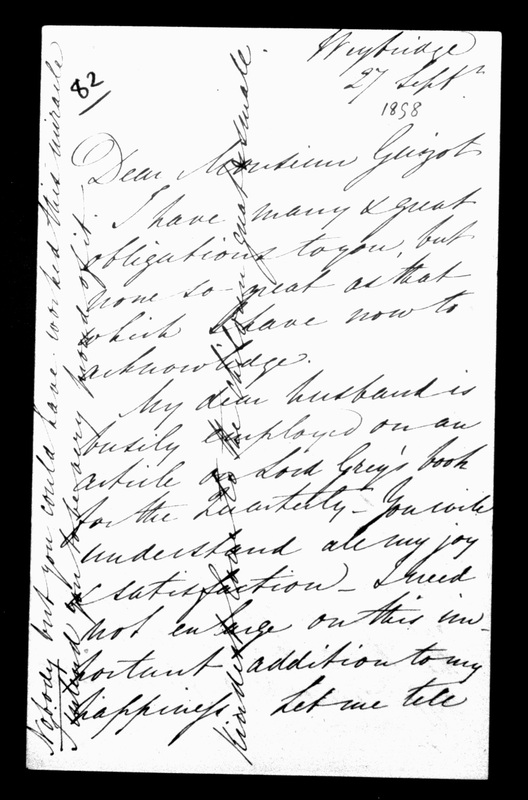 82
Weybridge
27 Septr
1898
Dear Monsieur Guizot
I have many & great
obligations to you, but
none so great as that
which I have now to
acknowledge.
My dear husband is
busily employed on an
article on Lord Grey's book
for the Quarterly – You will
understand all my joy
& satisfaction – I need
not enlarge on this im-
portant addition to my
happiness. Let me tell
Nobody but you could have worked this miracle
intend you to be very proud of it.
Kindest love to the great & small.